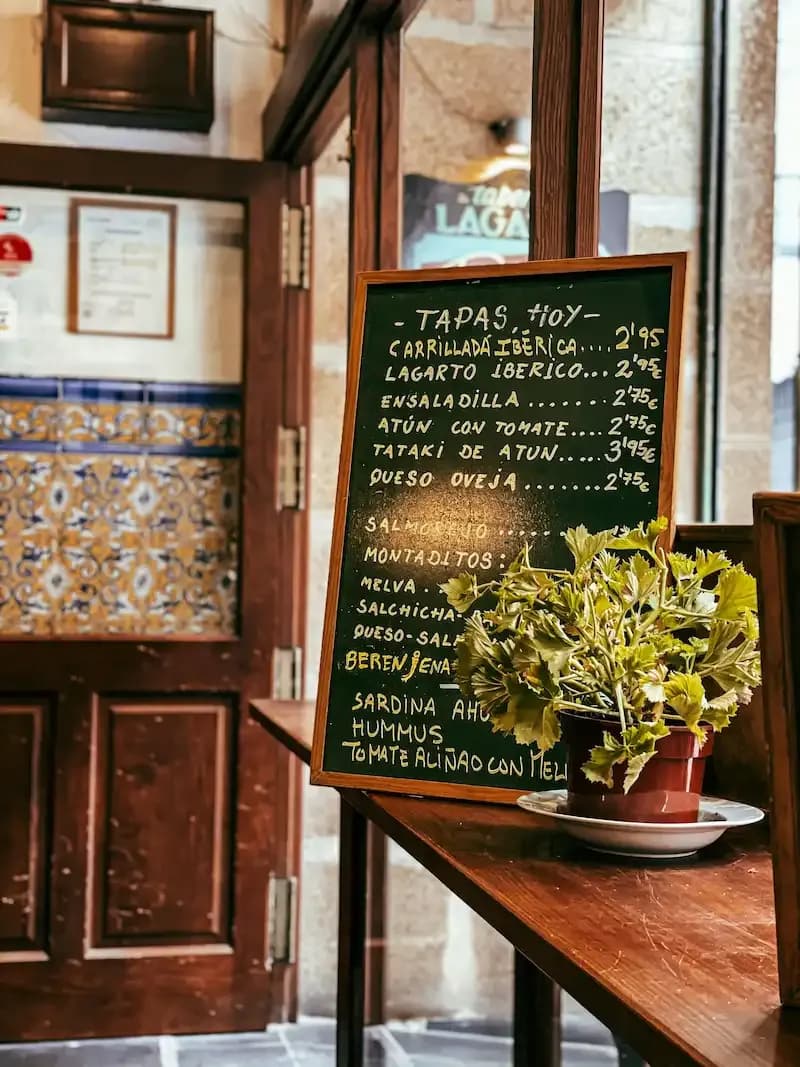 LAGA
- TAPAS HOY -
CARRILLADA IBÉRICA.... 2'95
LAGARTO IBERICO... 2'95€
ENSALADILLA ....... 2'75€
ATÚN CON TOMATE.... 2'75€
TATAKI DE ATUN..... 3'95€
QUESO OVEJA ....... 2'75€
SALMOREJO .....
MONTADITOS:
MELVA .
SALCHICHA
QUESO-SAL
BERENJENA
SARDINA AHU
HUMMUS
TOMATE ALIÑAO CON MEL